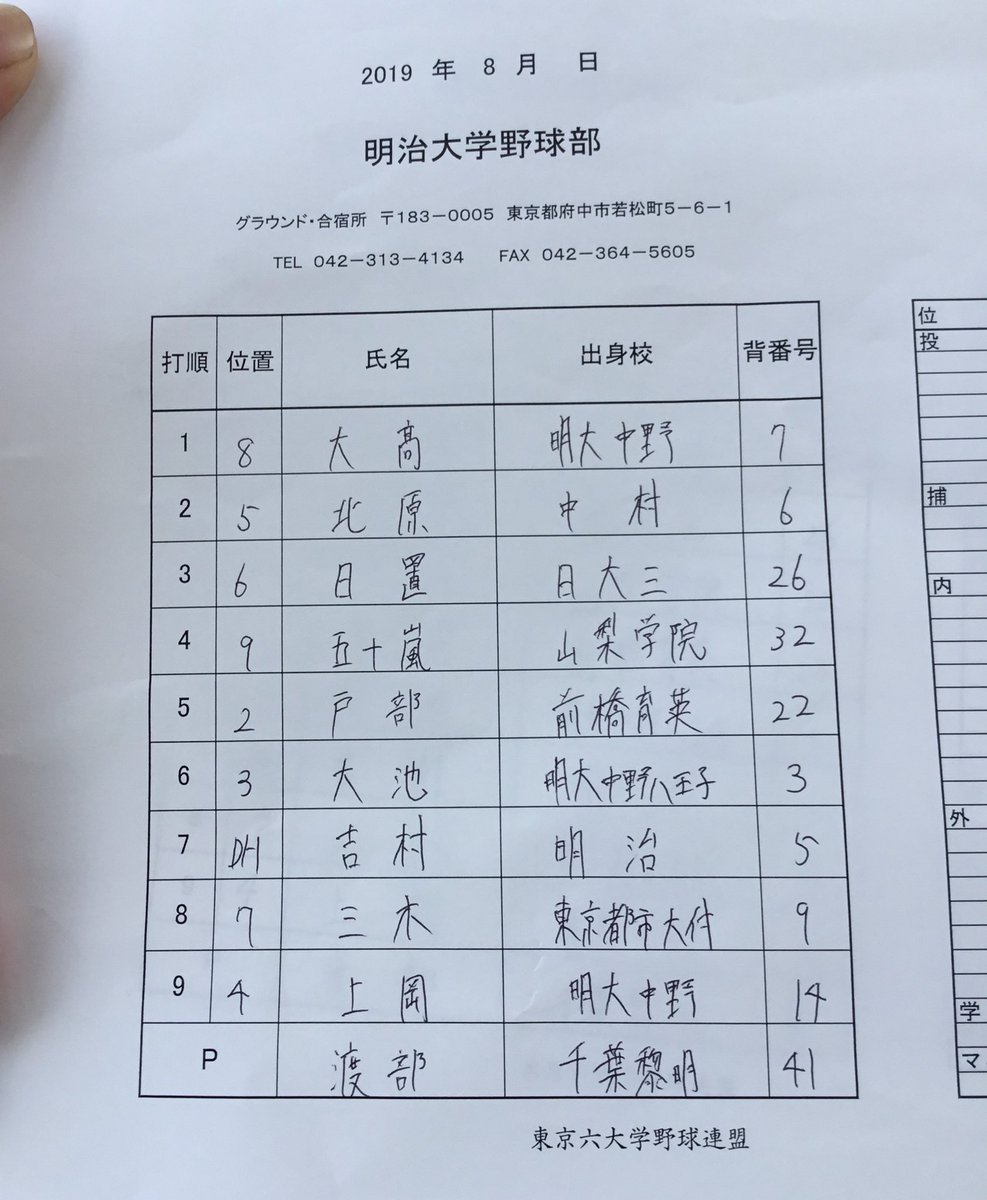 2019 年 8 月 日
明治大学野球部
グラウンド・合宿所 〒183－0005 東京都府中市若松町5－6－1
TEL 042－313－4134 FAX 042－364－5605
打順 位置 氏名 出身校 背番号
1 8 大 髙 明大中野 7
2 5 北 原 中 村 6
3 6 日 置 日 大 三 26
4 9 五十嵐 山梨学院 32
5 2 戸 部 前橋育英 22
6 3 大 池 明大中野八王子 3
7 DH 吉 村 明 治 5
8 7 三 木 東京都市大付 9
9 4 上 岡 明大中野 14
P 渡 部 千葉黎明 41
東京六大学野球連盟
位
投
捕
内
外
学
マ